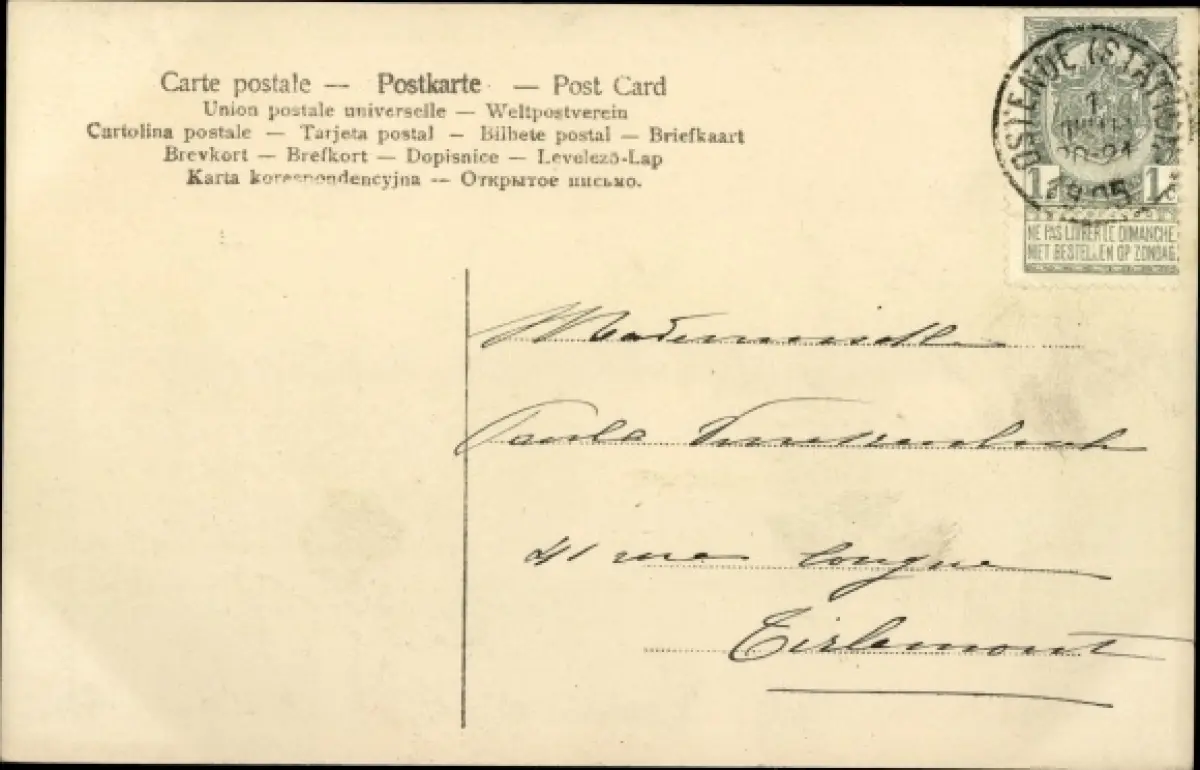 Carte postale — Postkarte — Post Card
Union postale universelle — Weltpostverein
Cartolina postale — Tarjeta postal — Bilhete postal — Briefkaart
Brevkort — Brefkort — Dopisnice — Levelező-Lap
Karta korespondencyjna — Открытое письмо.
OSTENDE (STATION)
1
20-21
1905
1 1
NE PAS LIVRER LE DIMANCHE
NIET BESTELLEN OP ZONDAG
Mademoiselle
Paula
41 rue Longue
Tirlemont